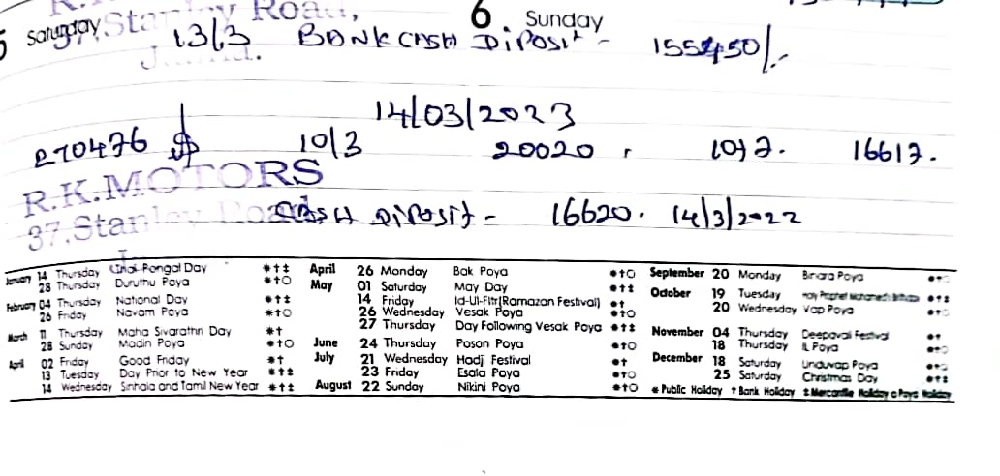 Stanley Road,
5 Saturday 6 Sunday
13/3 BANK CASH DIPOSIT - 155450/-
14/03/2023
270476 10/3 20020 , 16617.
R.K.MOTORS
37.Stanley Road
CASH DIPOSIT - 16620. 14/3/2022
January 14 Thursday Thai Pongal Day *†‡
28 Thursday Duruthu Poya *†○
February 04 Thursday National Day *†‡
26 Friday Navam Poya *†○
March 11 Thursday Maha Sivarathri Day *†
28 Sunday Madin Poya *†○
April 02 Friday Good Friday *†
13 Tuesday Day Prior to New Year *†‡
14 Wednesday Sinhala and Tamil New Year *†‡
April 26 Monday Bak Poya *†○
May 01 Saturday May Day *†‡
14 Friday Id-Ul-Fitr(Ramazan Festival) *†
26 Wednesday Vesak Poya *†○
27 Thursday Day Following Vesak Poya *†‡
June 24 Thursday Poson Poya *†○
July 21 Wednesday Hadj Festival *†
23 Friday Esala Poya *†○
August 22 Sunday Nikini Poya *†○
September 20 Monday Binara Poya *†○
October 19 Tuesday Holy Prophet Mohamed's Birthday *†‡
20 Wednesday Vap Poya *†○
November 04 Thursday Deepavali Festival *†
18 Thursday IL Poya *†○
December 18 Saturday Unduvap Poya *†○
25 Saturday Christmas Day *†‡
* Public Holiday † Bank Holiday ‡ Mercantile Holiday ○ Poya Holiday